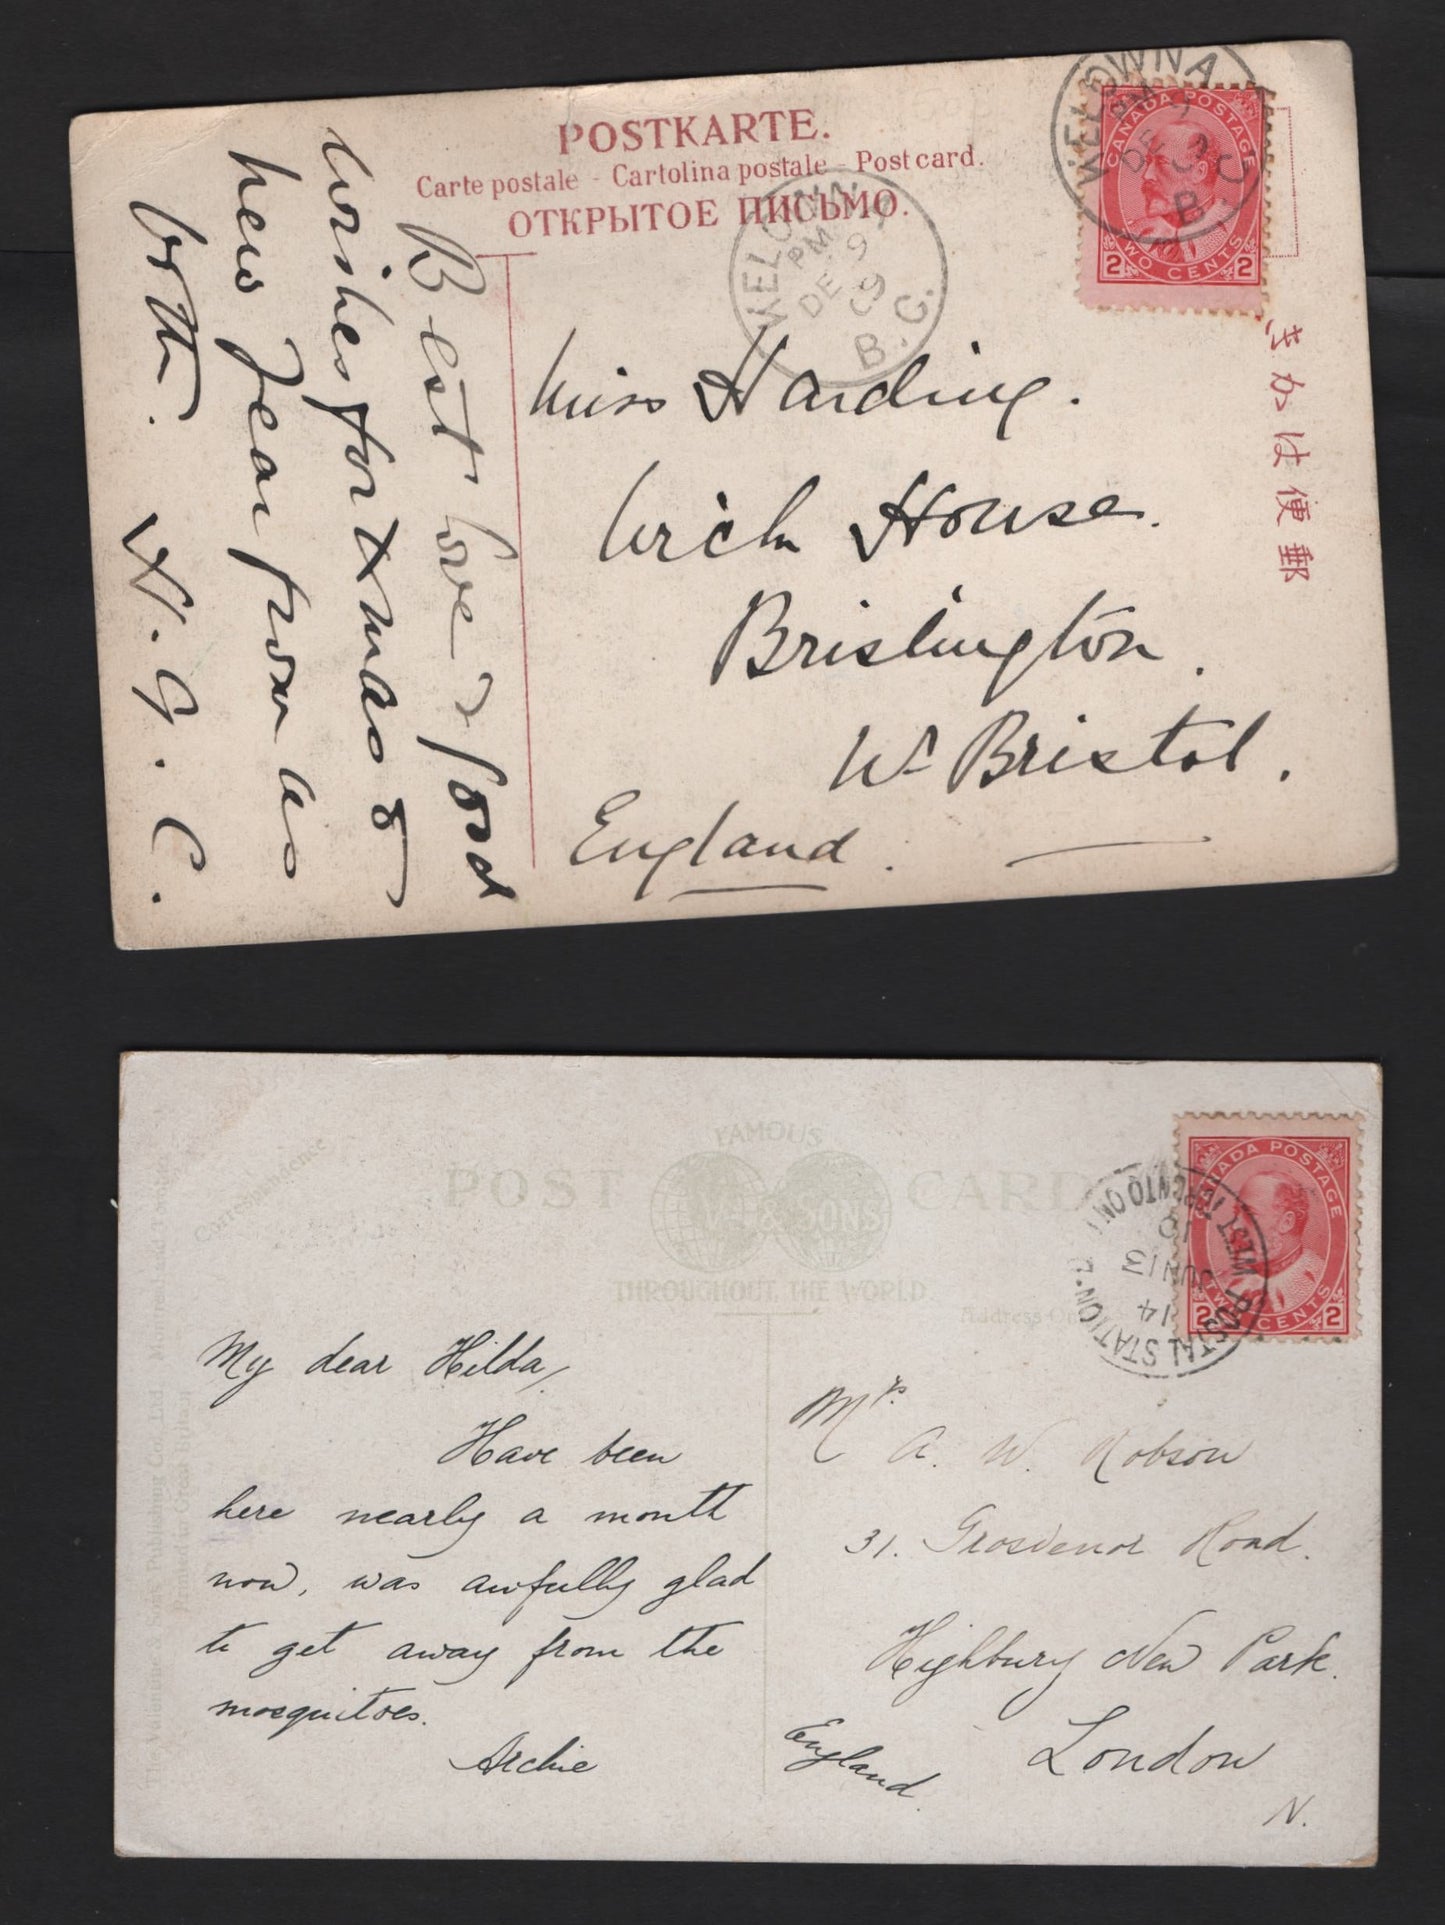 POSTKARTE.
Carte postale - Cartolina postale - Post card.
ОТКРЫТОЕ ПИСЬМО.
KELOWNA
PM
DE 9
09
B.C.
KELOWNA
PM
DE 9
B.C.
CANADA POSTAGE
2 TWO CENTS 2
きかは便郵
Best love & good
wishes for Xmas &
new Year from us
both.  H. G. C.
Miss Harding.
Wick House.
Brislington.
Nr Bristol.
England.
Correspondence
FAMOUS
POST CARD
& SONS
THROUGHOUT THE WORLD.
The Valentine & Sons' Publishing Co., Ltd., Montreal and Toronto
Printed in Great Britain
Address Only
CANADA POSTAGE
2 TWO CENTS 2
WEST TORONTO ONT
POSTAL STATION D
10
JUN 13
14
My dear Hilda,
Have been
here nearly a month
now, was awfully glad
to get away from the
mosquitoes.
Archie
Mrs.
A. W. Robson
31. Grosvenor Road.
Highbury New Park.
London
N.
England